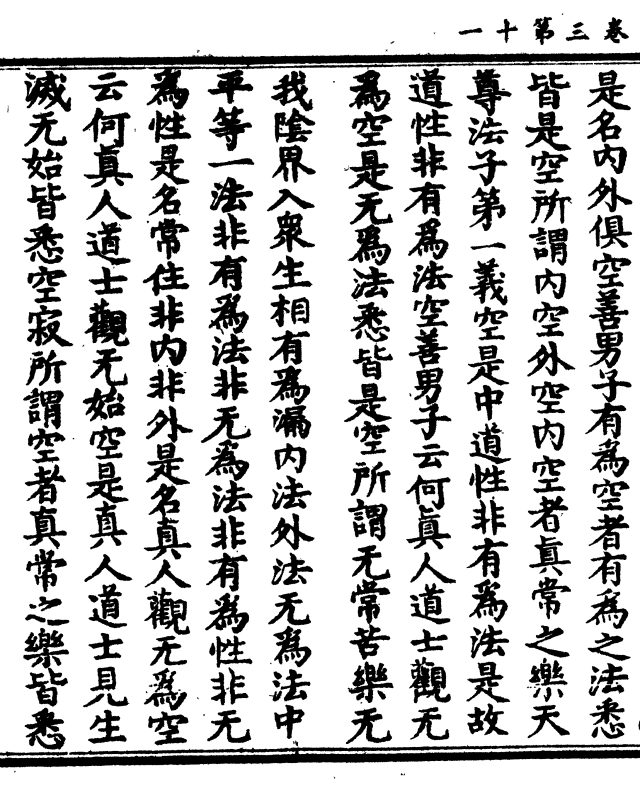 卷三第十一
是名内外俱空善男子有為空者有為之法悉
皆是空所謂内空外空内空者真常之樂天
尊法子第一義空是中道性非有為法是故
道性非有為法空善男子云何真人道士觀无
為空是无為法悉皆是空所謂无常苦樂无
我陰界入衆生相有為漏内法外法无為法中
平等一法非有為法非无為法非有為性非无
為性是名常住非内非外是名真人觀无為空
云何真人道士觀无始空是真人道士見生
滅无始皆悉空寂所謂空者真常之樂皆悉